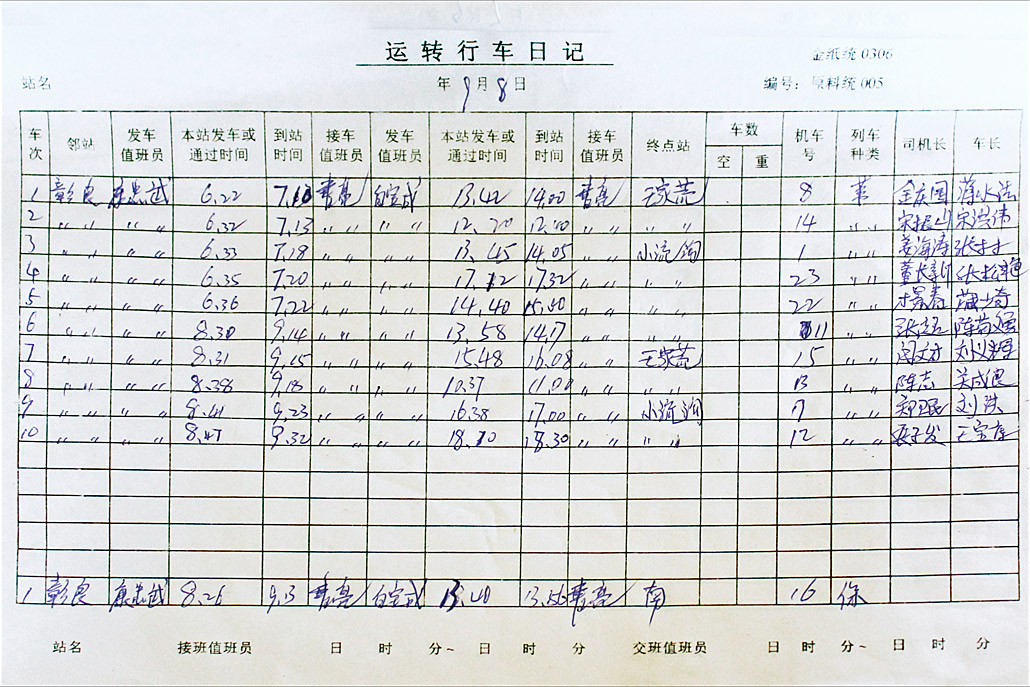 运转行车日记
金纸统 0306
站名 年9月8日 编号：原料统 005
车次 邻站 发车值班员 本站发车或通过时间 到站时间 接车值班员 发车值班员 本站发车或通过时间 到站时间 接车值班员 终点站 车数 空 重 机车号 列车种类 司机长 车长
1 彰良 康忠武 6.22 7.10 曹亮 白宝成 13.42 14.00 曹亮 王家荒 8
2 〃 〃 〃 〃 6.32 7.13 〃 〃 〃 〃 12.20 〃 〃 〃 〃 14 〃 〃 宋振山 宋洪伟
3 〃 〃 〃 〃 6.33 7.18 〃 〃 〃 〃 13.45 14.05 〃 〃 小流沟 1 〃 〃 姜海涛
4 〃 〃 〃 〃 6.35 7.20 〃 〃 〃 〃 17.12 17.32 〃 〃 〃 〃 23 〃 〃 董长新
5 〃 〃 〃 〃 6.36 7.22 〃 〃 〃 〃 14.40 〃 〃 〃 〃 22 〃 〃
6 〃 〃 〃 〃 8.30 9.14 〃 〃 〃 〃 13.58 14.17 〃 〃 〃 〃 11 〃 〃
7 〃 〃 〃 〃 8.31 9.15 〃 〃 〃 〃 15.48 16.08 〃 〃 王家荒 15 〃 〃
8 〃 〃 〃 〃 8.38 9.18 〃 〃 〃 〃 10.37 11.00 〃 〃 〃 〃 13 〃 〃 陈志 关成良
9 〃 〃 〃 〃 8.41 9.23 〃 〃 〃 〃 16.38 17.00 〃 〃 小流沟 7 〃 〃 刘洪
10 〃 〃 〃 〃 8.47 9.32 〃 〃 〃 〃 18.10 18.30 〃 〃 〃 〃 12 〃 〃
1 彰良 康忠武 8.26 9.13 曹亮 白宝成 13.40 13.56 曹亮 南 16
站名 接班值班员 日 时 分~ 日 时 分 交班值班员 日 时 分~ 日 时 分